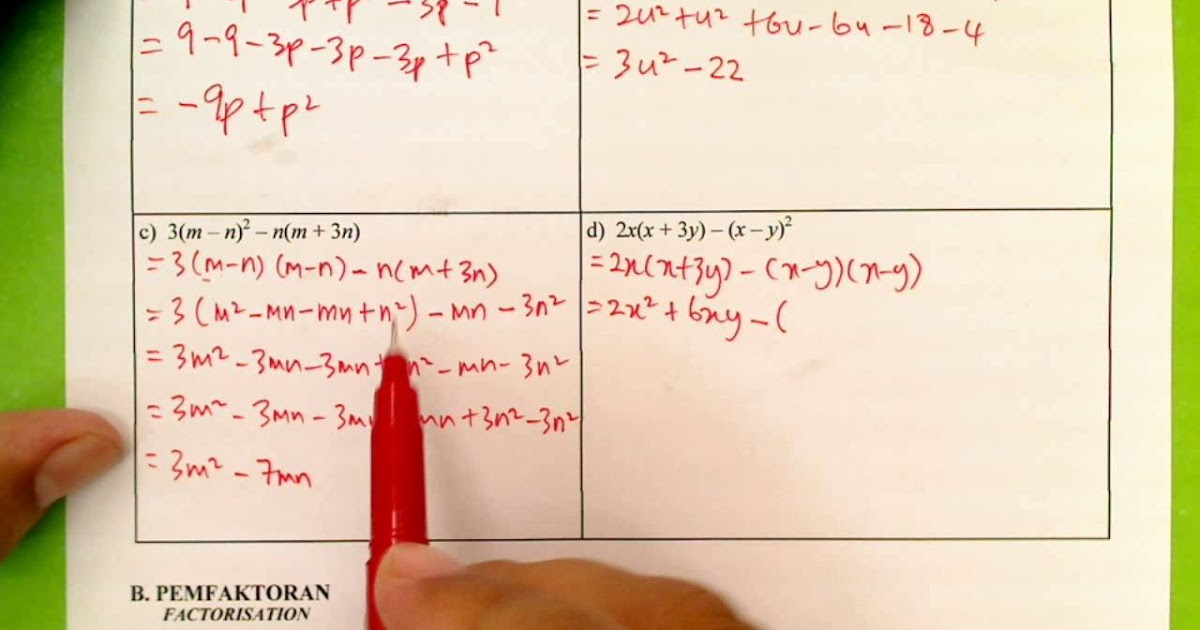 = 9 - 9 - 3p - 3p - 3p + p²
= -9p + p²
= 2u² + u² + 6u - 6u - 18 - 4
= 3u² - 22
c) 3(m – n)² – n(m + 3n)
= 3(m-n)(m-n) - n(m+3n)
= 3(m² - mn - mn + n²) - mn - 3n²
= 3m² - 3mn - 3mn + n² - mn - 3n²
= 3m² - 3mn - 3m mn + 3n² - 3n²
= 3m² - 7mn
d) 2x(x + 3y) – (x – y)²
= 2x(x+3y) - (x-y)(x-y)
= 2x² + 6xy - (
B. PEMFAKTORAN
FACTORISATION